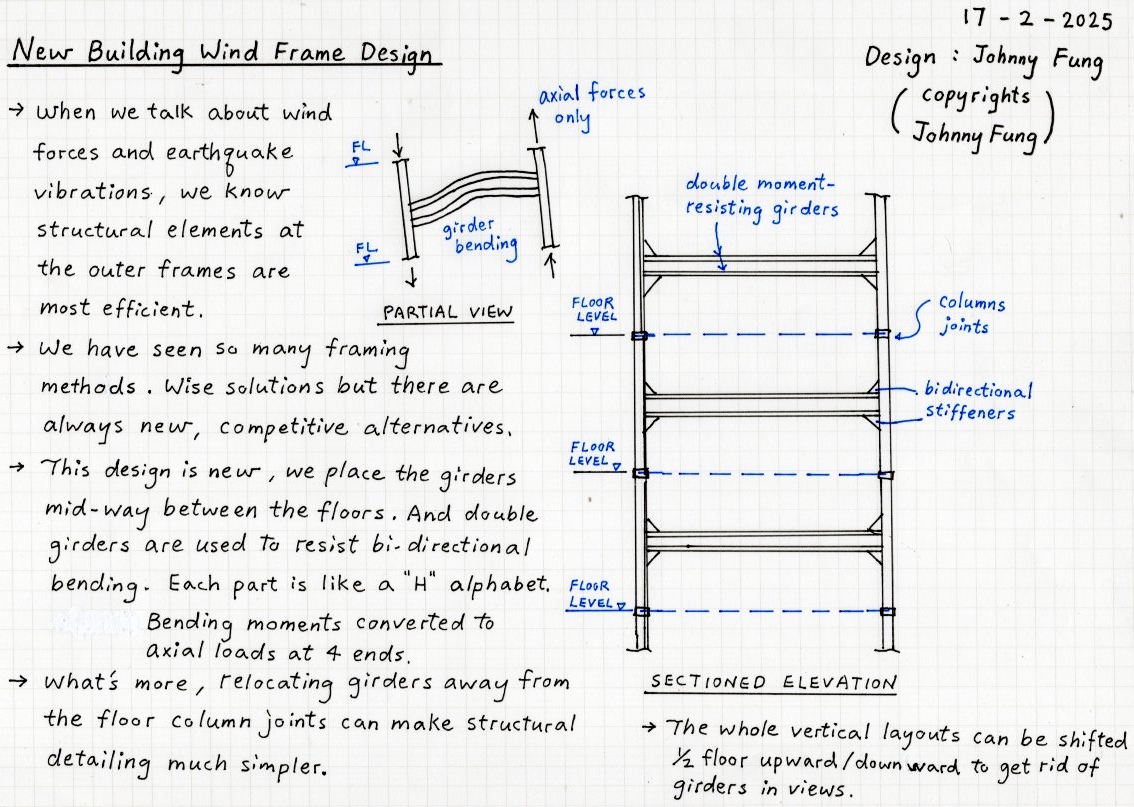 17 - 2 - 2025
New Building Wind Frame Design
Design : Johnny Fung
( copyrights
Johnny Fung )
→ When we talk about wind
forces and earthquake
vibrations, we know
structural elements at
the outer frames are
most efficient.
axial forces
only
FL
girder
bending
FL
PARTIAL VIEW
→ We have seen so many framing
methods. Wise solutions but there are
always new, competitive alternatives.
→ This design is new, we place the girders
mid-way between the floors. And double
girders are used to resist bi-directional
bending. Each part is like a "H" alphabet.
Bending moments converted to
axial loads at 4 ends.
→ What's more, relocating girders away from
the floor column joints can make structural
detailing much simpler.
double moment-
resisting girders
FLOOR
LEVEL
columns
joints
bidirectional
stiffeners
FLOOR
LEVEL
FLOOR
LEVEL
SECTIONED ELEVATION
→ The whole vertical layouts can be shifted
1/2 floor upward/downward to get rid of
girders in views.